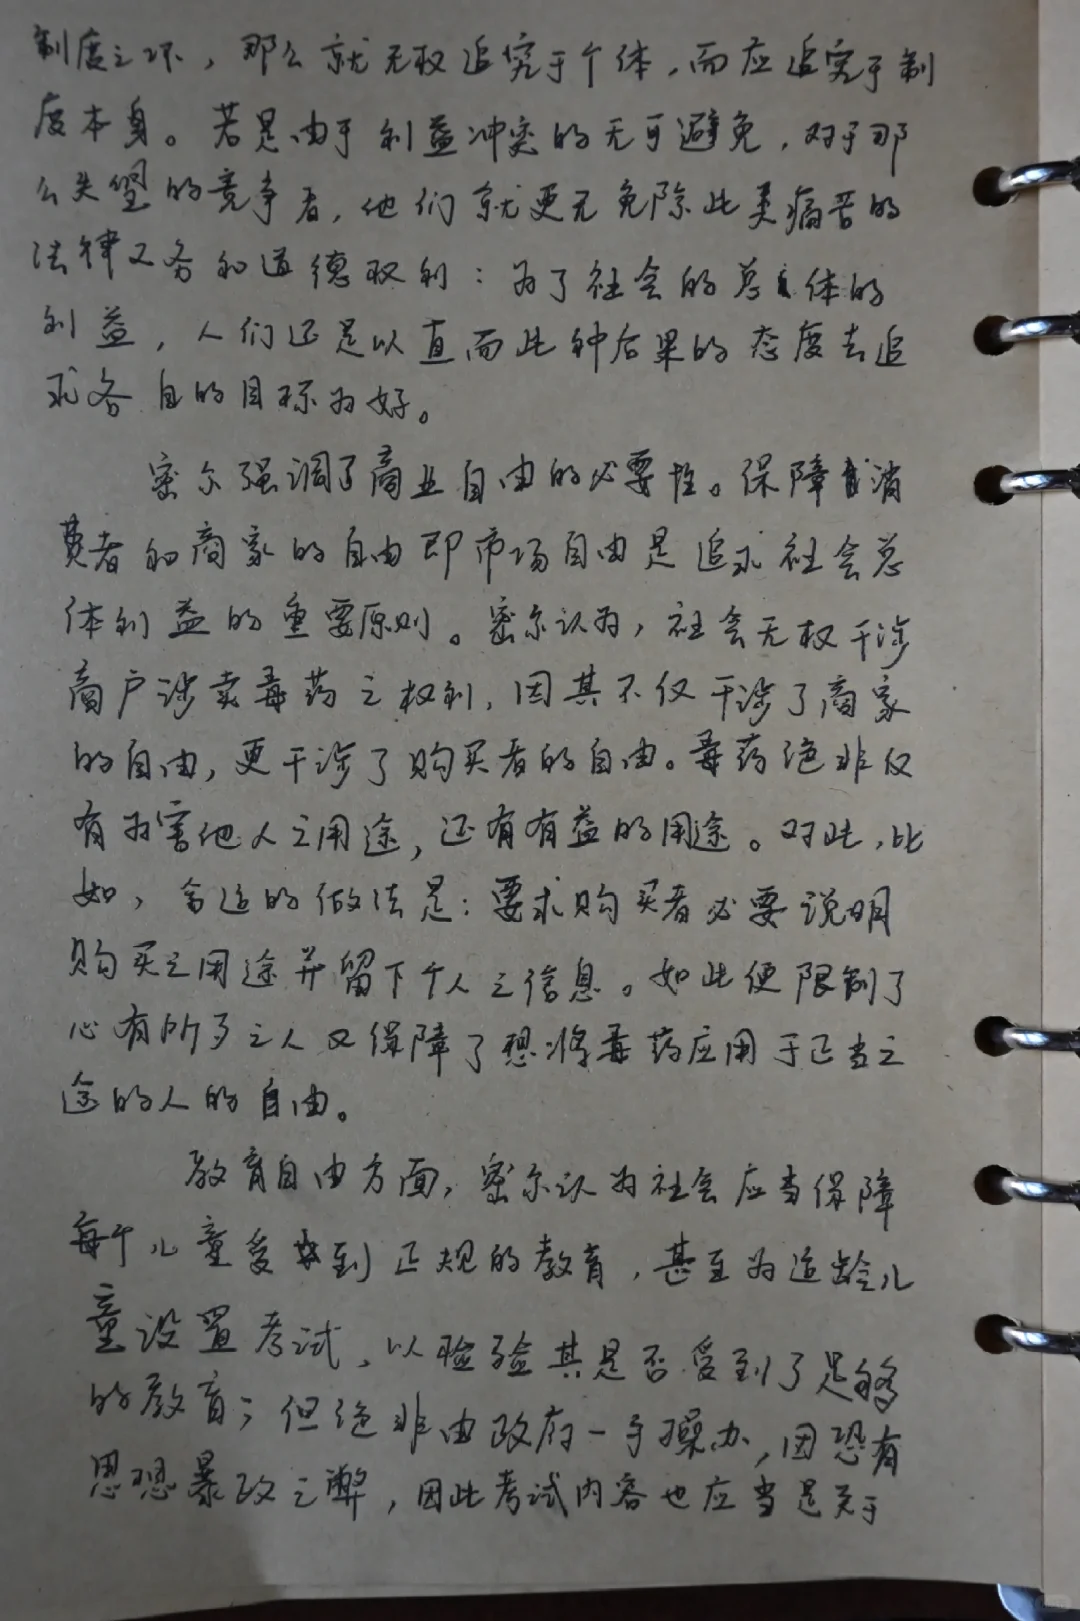 制度之坏，那么就无权追究于个体，而应追究于制
度本身。若是由于利益冲突的无可避免，对于那
么失望的竞争者，他们就更无免除此类痛苦的
法律义务和道德权利：为了社会的总体的
利益，人们还是以直面此种后果的态度去追
求各自的目标为好。
密尔强调了商业自由的必要性。保障消
费者和商家的自由即市场自由是追求社会总
体利益的重要原则。密尔认为，社会无权干涉
商户涉卖毒药之权利，因其不仅干涉了商家
的自由，更干涉了购买者的自由。毒药绝非仅
有为害他人之用途，还有有益的用途。对此，比
如，合适的做法是：要求购买者必要说明
购买之用途并留下个人之信息。如此便限制了
心有所歹之人又保障了想将毒药应用于正当之
途的人的自由。
教育自由方面，密尔认为社会应当保障
每个儿童受到正规的教育，甚至为适龄儿
童设置考试，以检验其是否受到了足够
的教育；但绝非由政府一手操办，因恐有
思想暴政之弊，因此考试内容也应当是关于